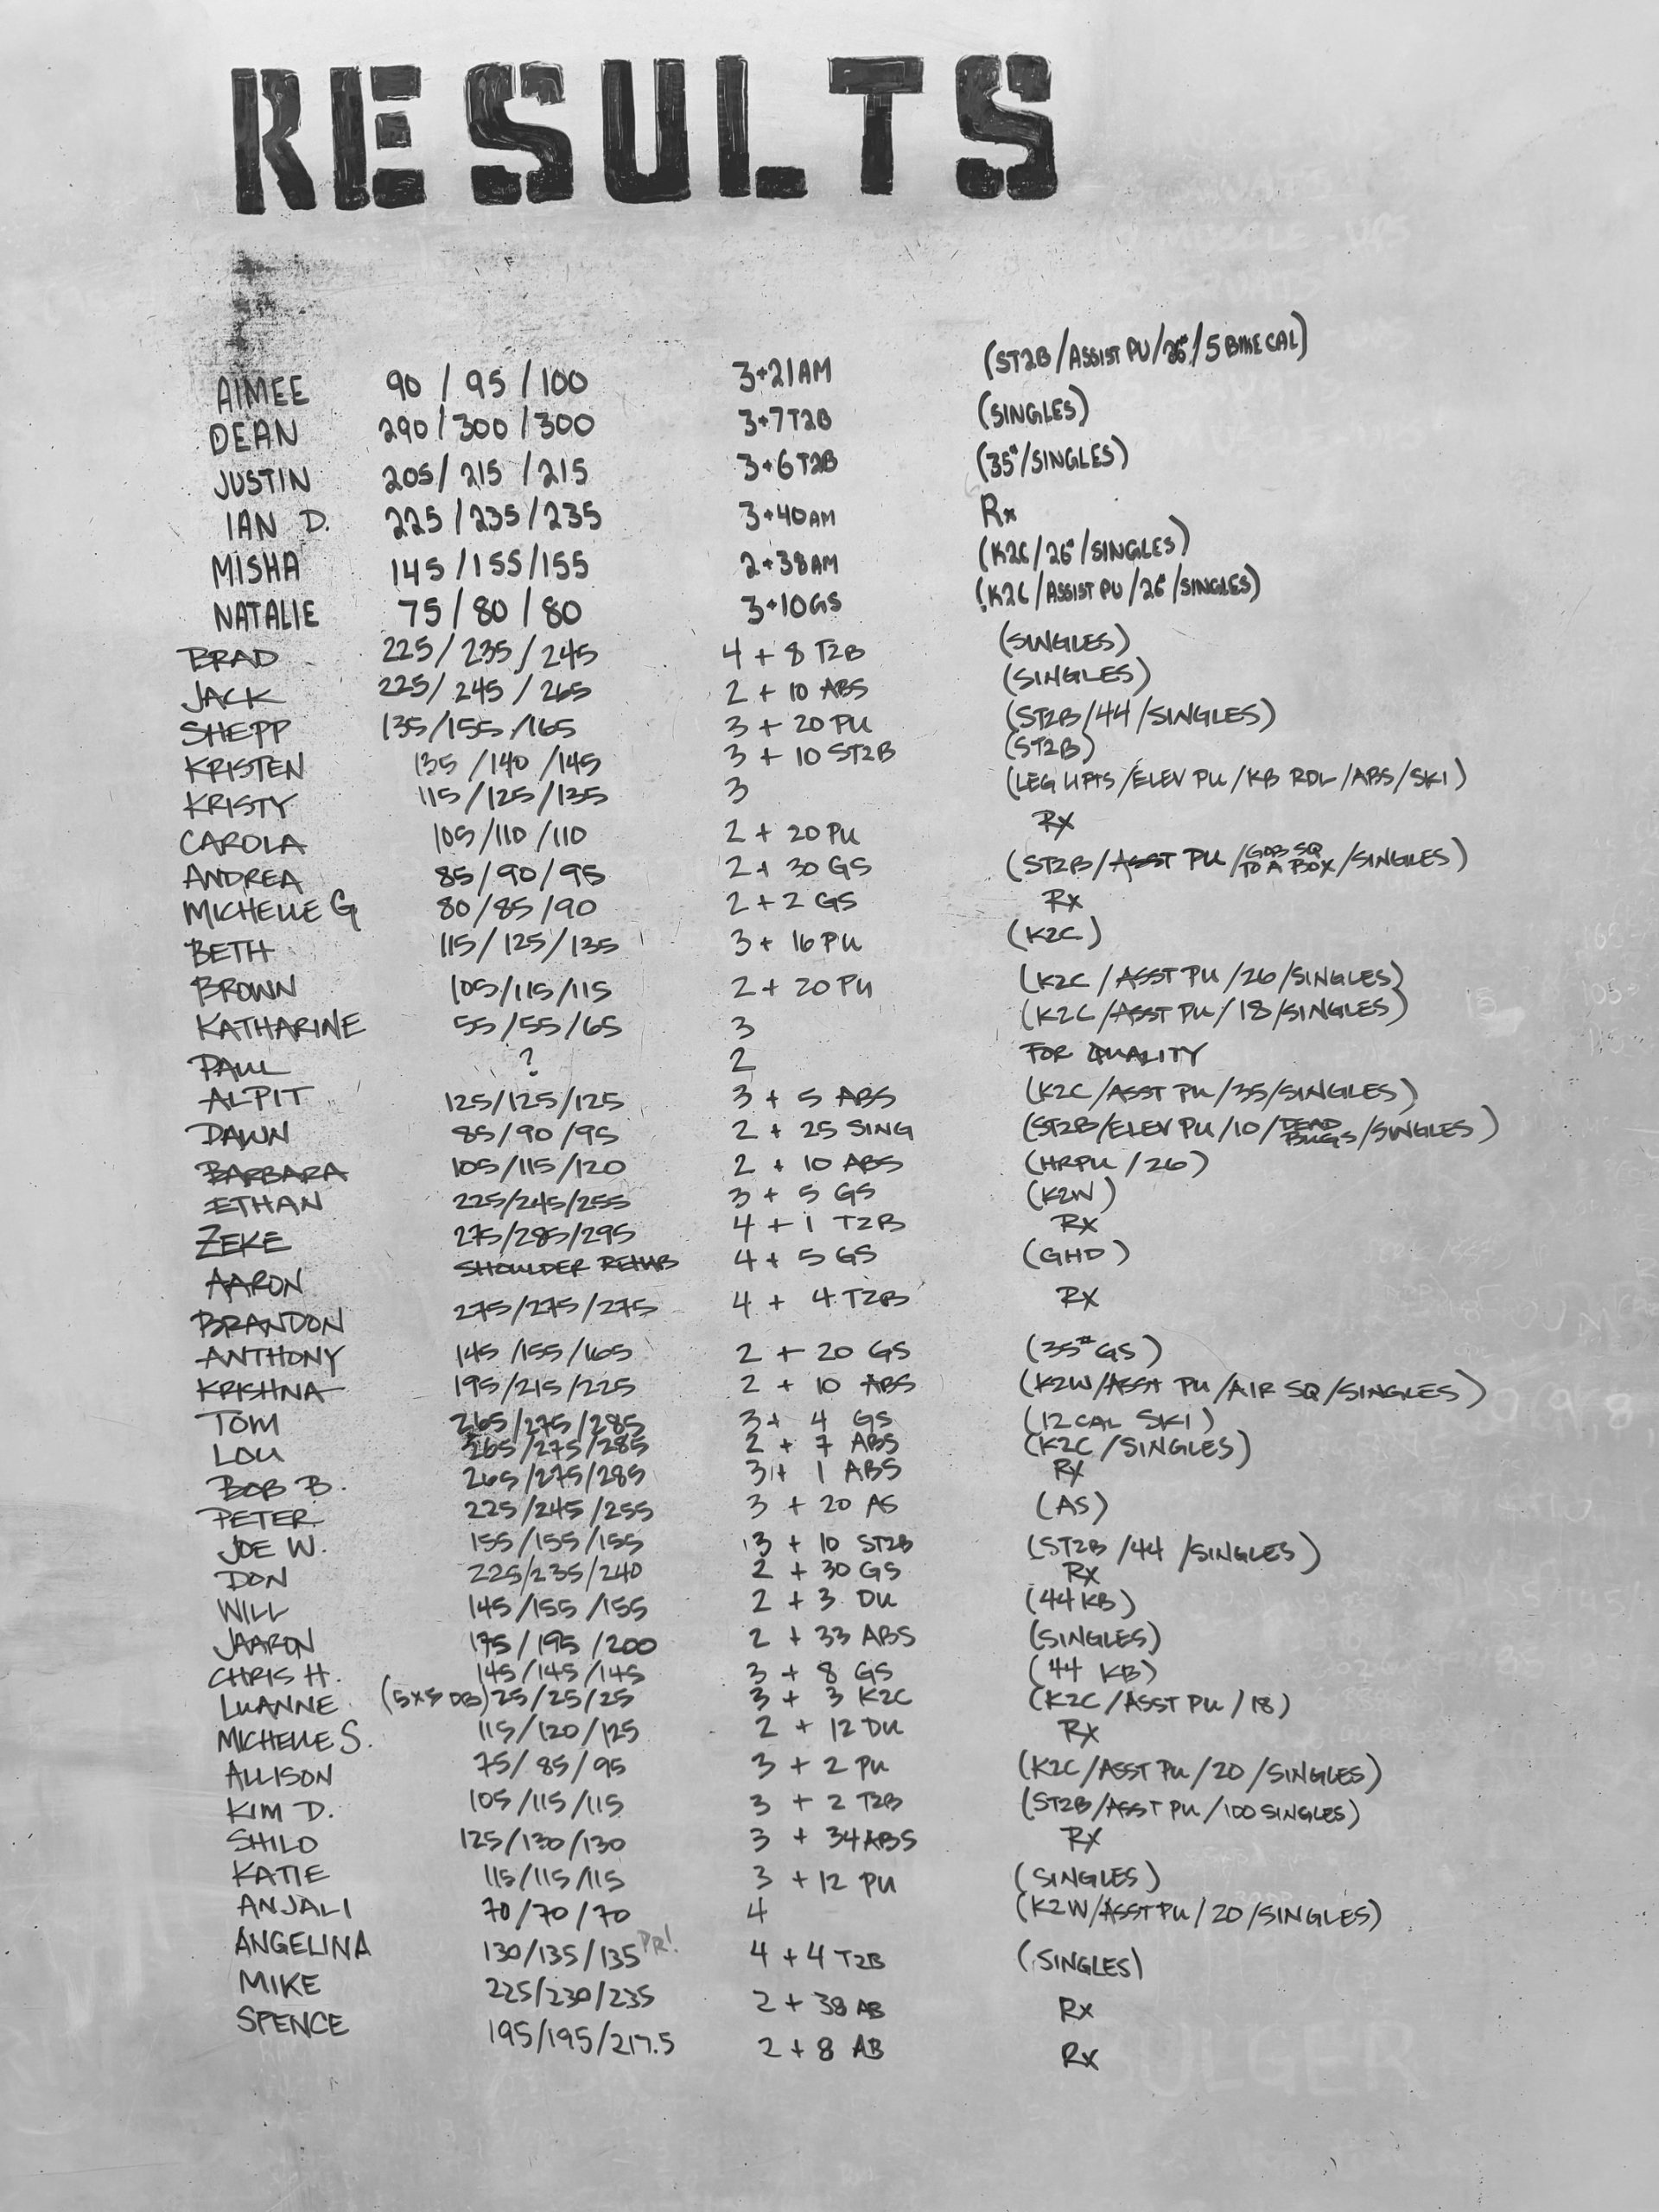 RESULTS
AIMEE 90 / 95 / 100 3+21AM (ST2B/ASSIST PU/26"/5 BIKE CAL)
DEAN 290/300/300 3+7T2B (SINGLES)
JUSTIN 205/215/215 3+6T2B (35"/SINGLES)
IAN D. 225/235/235 3+40AM Rx
MISHA 145/155/155 2+38AM (K2C/26"/SINGLES)
NATALIE 75/80/80 3+10GS (K2C/ASSIST PU/26"/SINGLES)
BRAD 225/235/245 4 + 8 T2B (SINGLES)
JACK 225/245/265 2 + 10 ABS (SINGLES)
SHEPP 135/155/165 3 + 20 PU (ST2B/44/SINGLES)
KRISTEN 135/140/145 3 + 10 ST2B (ST2B)
KRISTY 115/125/135 3 (LEG LIFTS/ELEV PU/KB RDL/ABS/SKI)
CAROLA 105/110/110 2 + 20 PU RX
ANDREA 85/90/95 2 + 30 GS (ST2B/ASST PU/GOB SQ TO A BOX/SINGLES)
MICHELLE G 80/85/90 2 + 2 GS RX
BETH 115/125/135 3 + 16 PU (K2C)
BROWN 105/115/115 2 + 20 PU (K2C/ASST PU/26/SINGLES)
KATHARINE 55/55/65 3 (K2C/ASST PU/18/SINGLES)
PAUL ? 2 FOR QUALITY
ALPIT 125/125/125 3 + 5 ABS (K2C/ASST PU/35/SINGLES)
DAWN 85/90/95 2 + 25 SING (ST2B/ELEV PU/10/DEAD BUGS/SINGLES)
BARBARA 105/115/120 2 + 10 ABS (HRPU/26)
ETHAN 225/245/255 3 + 5 GS (K2W)
ZEKE 275/285/295 4 + 1 T2B RX
AARON SHOULDER REHAB 4 + 5 GS (GHD)
BRANDON 275/275/275 4 + 4 T2B RX
ANTHONY 145/155/165 2 + 20 GS (35# GS)
KRISHNA 195/215/225 2 + 10 ABS (K2W/ASST PU/AIR SQ/SINGLES)
TOM 265/275/285 3 + 4 GS (12 CAL SKI)
LOU 265/275/285 2 + 7 ABS (K2C/SINGLES)
BOB B. 265/275/285 3 + 1 ABS RX
PETER 225/245/255 3 + 20 AS (AS)
JOE W. 155/155/155 3 + 10 ST2B (ST2B/44/SINGLES)
DON 225/235/240 2 + 30 GS RX
WILL 145/155/155 2 + 3 DU (44 KB)
JAARON 175/195/200 2 + 33 ABS (SINGLES)
CHRIS H. 145/145/145 3 + 8 GS (44 KB)
LUANNE (5x5 DB) 25/25/25 3 + 3 K2C (K2C/ASST PU/18)
MICHELLE S. 115/120/125 2 + 12 DU RX
ALLISON 75/85/95 3 + 2 PU (K2C/ASST PU/20/SINGLES)
KIM D. 105/115/115 3 + 2 T2B (ST2B/ASST PU/100 SINGLES)
SHILO 125/130/130 3 + 34 ABS RX
KATIE 115/115/115 3 + 12 PU (SINGLES)
ANJALI 70/70/70 4 (K2W/ASST PU/20/SINGLES)
ANGELINA 130/135/135 PR! 4 + 4 T2B (SINGLES)
MIKE 225/230/235 2 + 38 AB Rx
SPENCE 195/195/217.5 2 + 8 AB Rx
BULGER